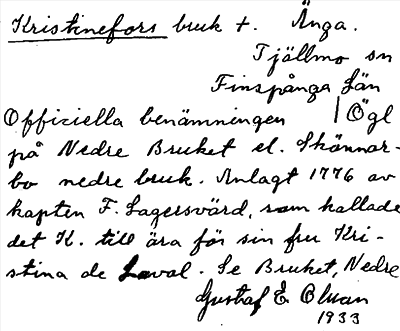 Kristinefors bruk +. Änga.
Tjällmo sn
Finspånga Län
Officiella benämningen | Ögl
på Nedre Bruket el. Skönnar-
bo nedre bruk. Anlagt 1776 av
kapten F. Lagersvärd, som kallade
det K. till ära för sin fru Kri-
stina de Laval. Se Bruket, Nedre
Gustaf E. Olman
1933